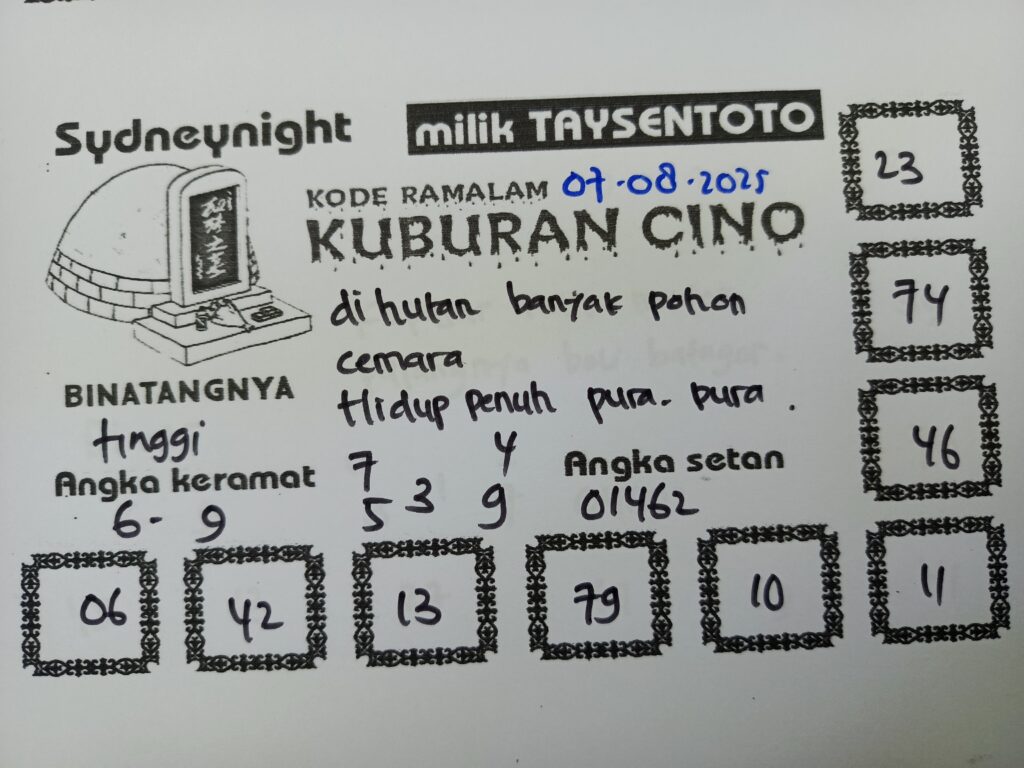 Sydneynight
milik TAYSENTOTO
KODE RAMALAM 07-08-2025
KUBURAN CINO
di hutan banyak pohon
cemara
Hidup penuh pura-pura.
BINATANGNYA
tinggi
Angka keramat
6 - 9
7 4
3
5 9
Angka setan
01462
23
74
46
06 42 13 79 10 11